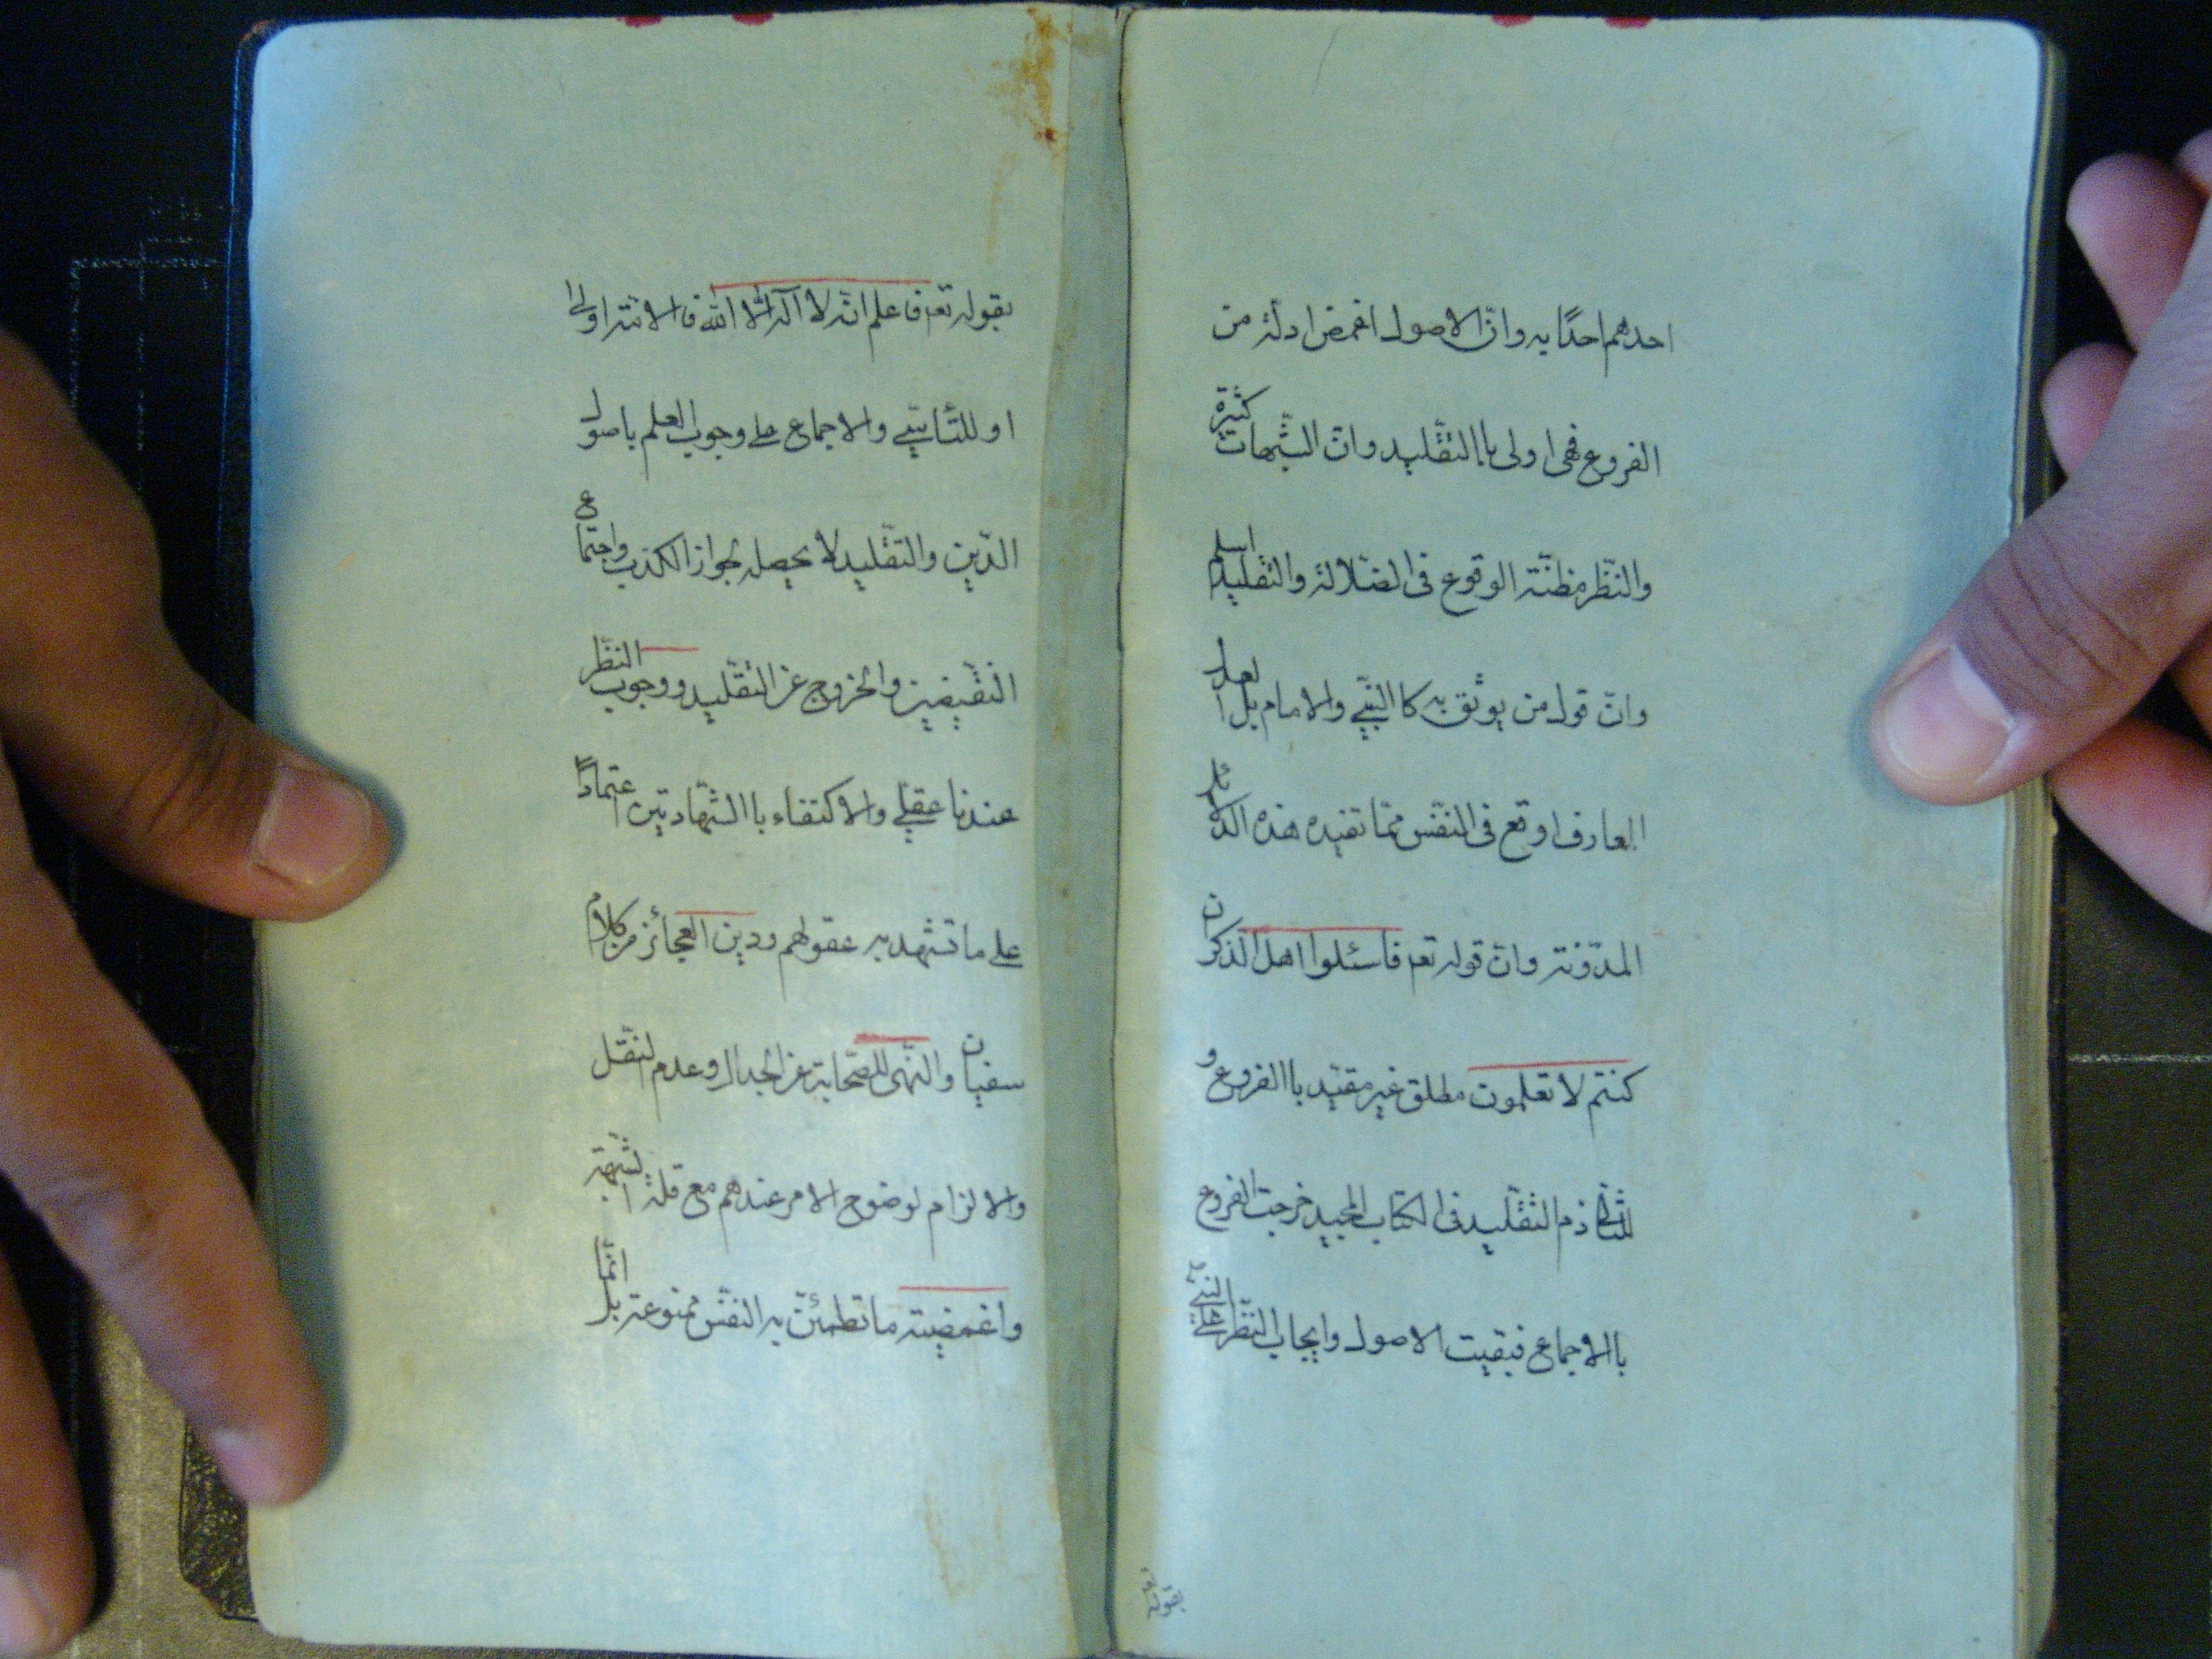 احدهم احدًا به وانّ الاصول اغمض ادلّة من
الفروع فهی اولی باالتقّلید وانّ الشّبهات كثیرة
والنّظر مظنّة الوقوع فی الضّلالة والتقلید اسلم
وانّ قول من یوثق به كا النّبیّ والامام بل العدل
العارف اوقع فی النّفس ممّا تفیده هذه الدّلائل
المدّونة وانّ قوله تع فاسئلوا اهل الذّكر ان
كنتم لا تعلمون مطلق غیر مقیّد باالفروع و
ذم التّقلید فی الكتاب المجید خرجت الفروع
باالاجماع فبقیت الاصول وایجاب النّظر علی النبیّ
بقوله
بقوله تع فاعلم انّه لا اله الّا الله فالامّة اولی
او للتّاسّی والاجماع علی وجوب العلم باصول
الدّین والتّقلید لا یحصله لجواز الكذب واجتماع
النّقیضین والخروج عن التّقلید ووجوب النّظر
عندنا عقلی والاكتفاء باالشّهادتین اعتمادًا
علی ما تشهد به عقولهم ودین العجائز من كلام
سفیان والنّهی للصّحابة عن الجدال وعدم النقل
والالزام لوضوح الامر عندهم مع قلّة الشّبهة
واغمضیّة ما تطمئنّ به النّفس ممنوعة بل انّما